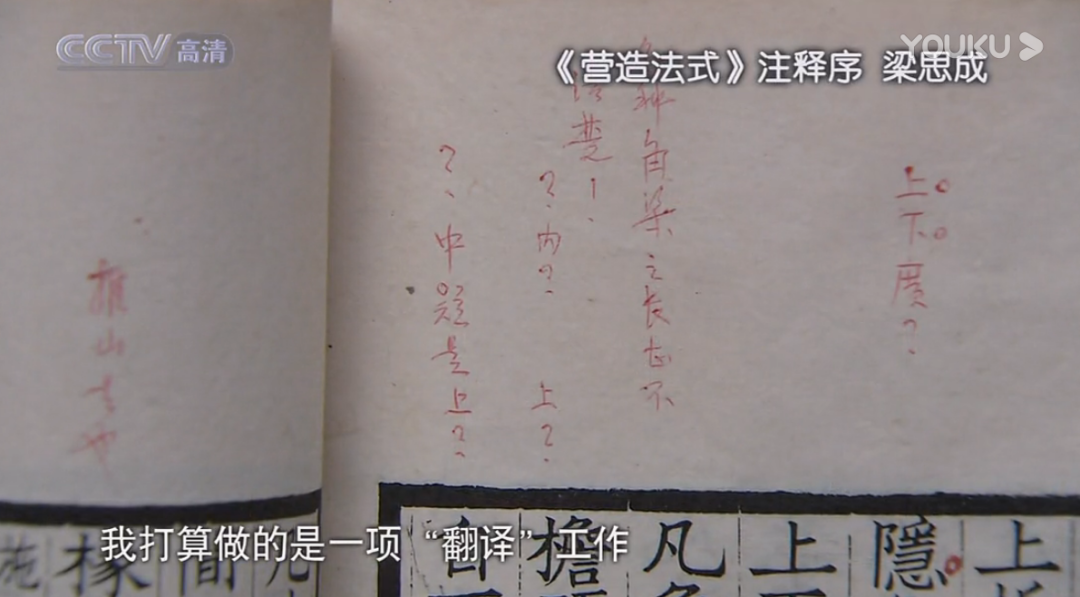 CCTV高清
YOUKU
《营造法式》注释序 梁思成
上下廣？
種角梁之长
楚！
？内？ 上？
？中 是上？
上
隱
上
凡
檐
自
凡
間
椽
施
我打算做的是一项“翻译”工作